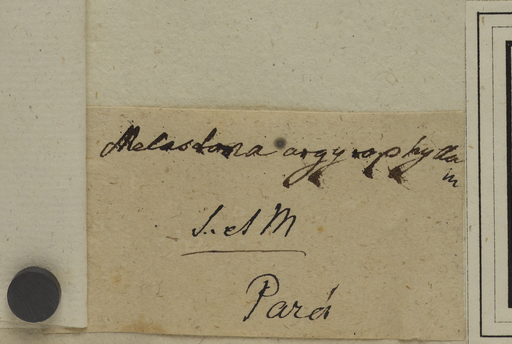 Melastoma argyrophylla
in
S. et M
Pará